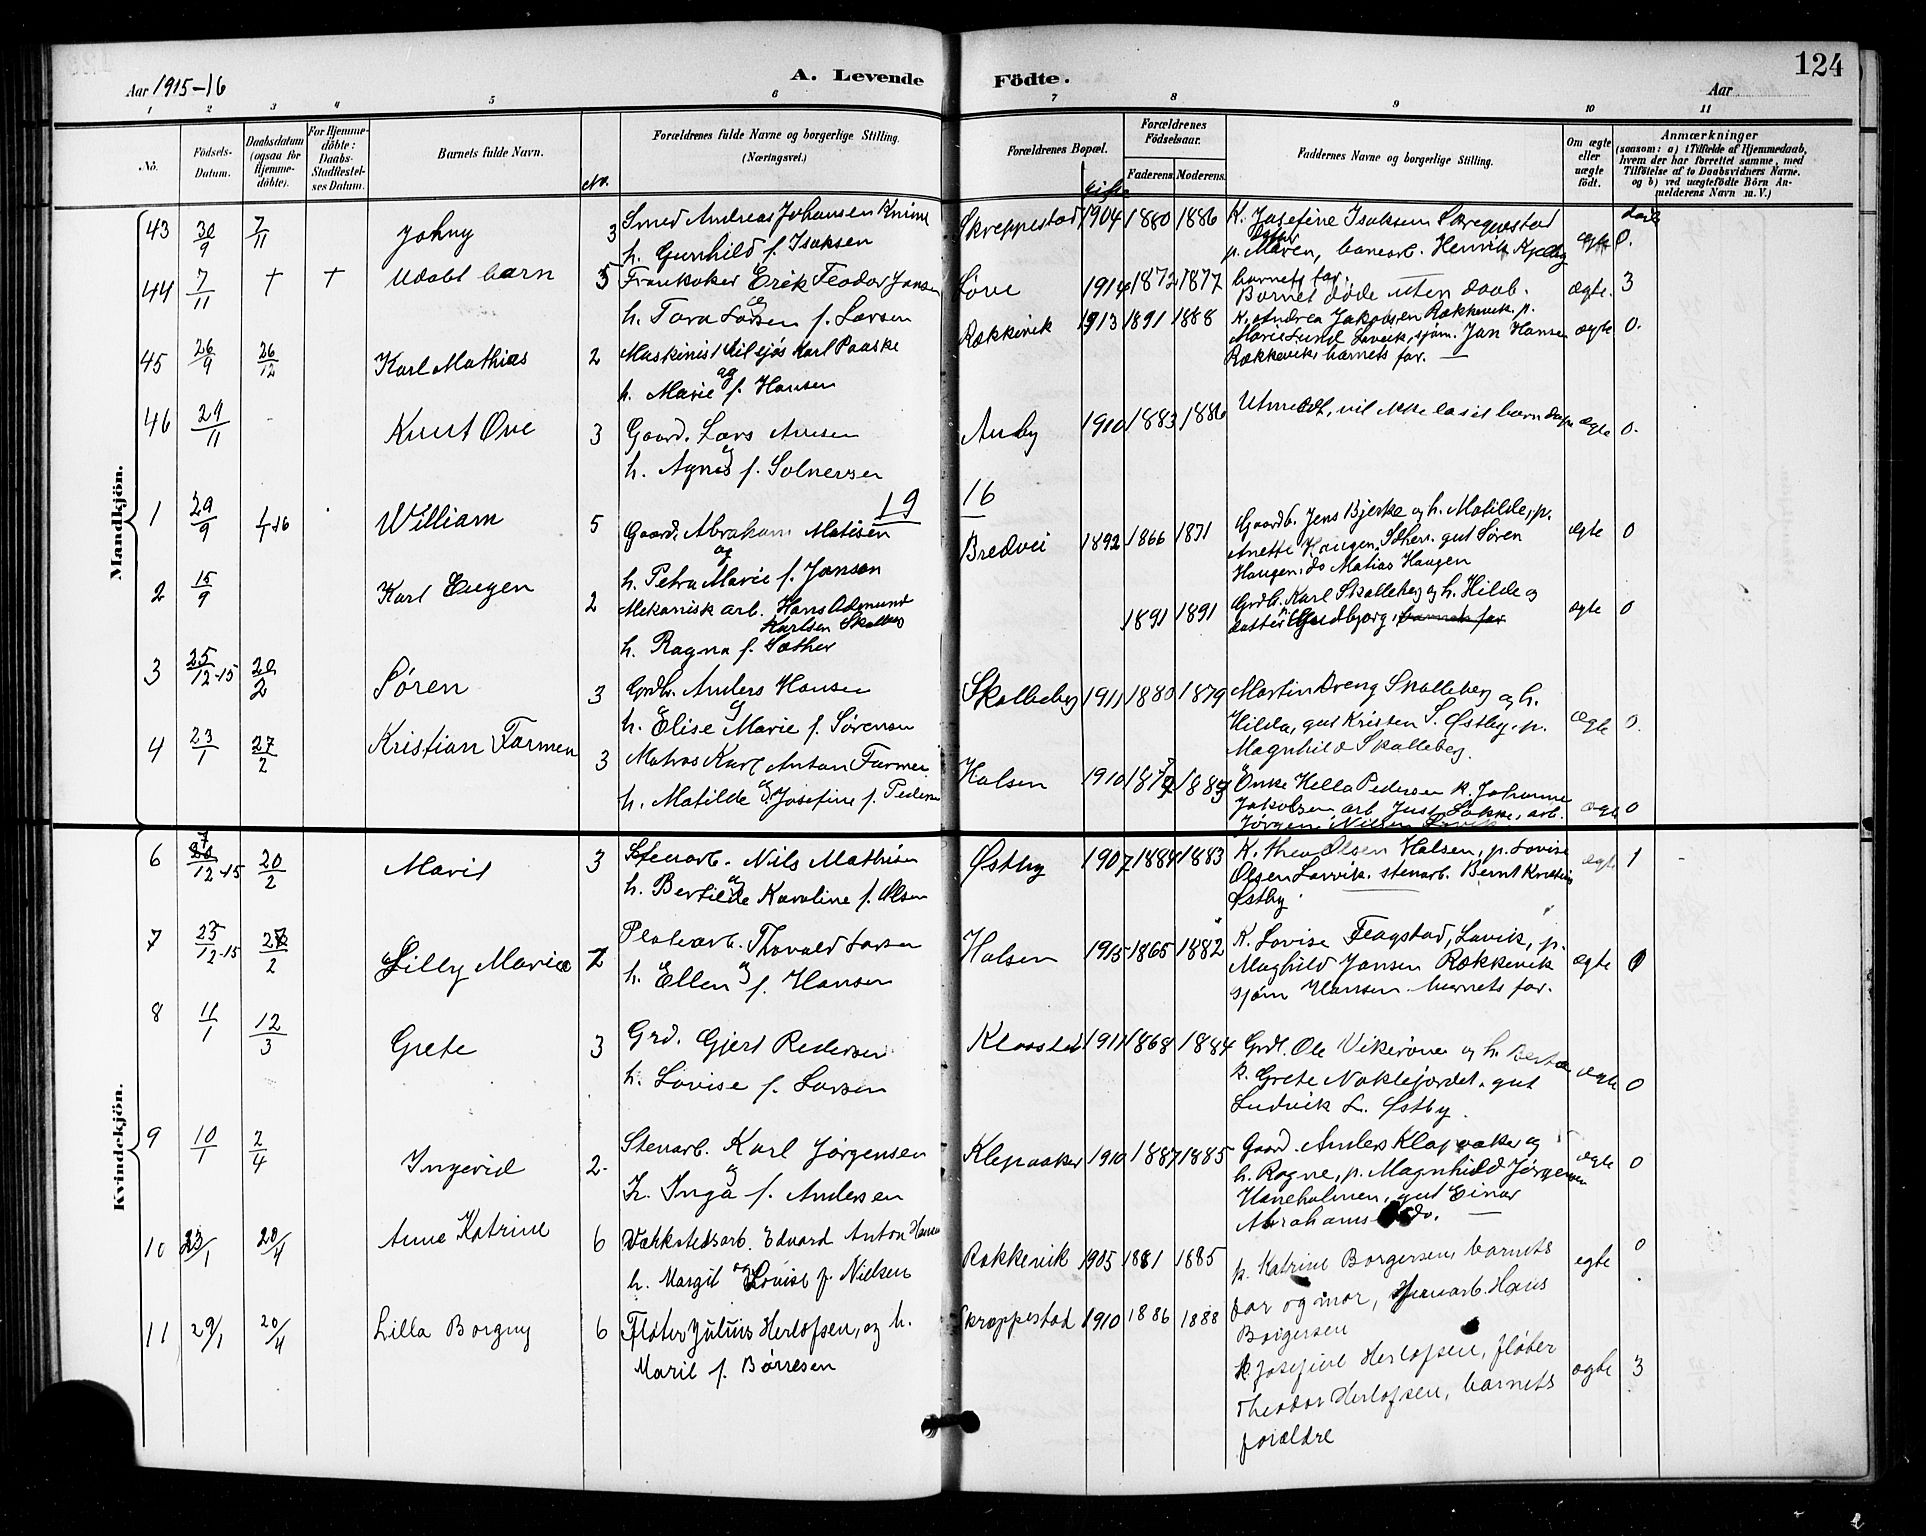 124
Aar 1915-16
A. Levende Födte.
Aar
1 2 3 4 5 6 7 8 9 10 11
No.
Födsels-Datum.
Daabsdatum (ogsaa for Hjemme-döbte).
For Hjemme-döbte: Daabs-Stadfæstel-ses Datum.
Barnets fulde Navn.
No.
Forældrenes fulde Navne og borgerlige Stilling.
(Næringsvei.)
Forældrenes Bopæl.
gifte
Forældrenes Födselsaar.
Faderens. Moderens.
Faddernes Navne og borgerlige Stilling.
Om ægte eller uægte födt.
Anmærkninger
(saasom: a) i Tilfælde af Hjemmedaab, hvem der har forrettet samme, med Tilföielse af to Daabsvidners Navne. og b) ved uægtefödte Börn An-melderens Navn m. V.)
Mandkjön.
43 30/9 7/11 Johny 3 Smed Andreas Johansen
h. Gunhild f. Isaksen
Skreppestad 1904 1880 1886 K. Josefine Isaksen Skreppestad
p. Maren, banearb. Henrik
barnets far. ægte 0.
44 7/11 + + Udøbt barn 5 Erik Teodor Jansen
og
h. Tora Larsen f. Larsen
Løve 1914 1872 1877 Barnet døde uten daab. ægte. 3
45 26/9 26/12 Karl Mathias 2 Maskinist tilsjøs Karl Paaske
og
h. Marie f. Hansen
Rækkevik 1913 1891 1888 K. Andrea Jakobsen Rækkevik p.
Marie Lund Larvik, sjøm. Jan Hansen
Rækkevik, barnets far. — ægte 0.
46 29/11 Knut Ove 3 Gaard. Lars
og
h. Agnes f. Solnersen
Auby 1910 1883 1886 Utmeldt, vil ikke la sit barn døpe ægte 0.
19 16
1 29/9 1/1-16 William 5 Gaard. Abraham Matisen
og
h. Petra Marie f. Jansen
Bredvei 1892 1866 1871 Gaardb. Jens Bjerke og h. Matilde, p.
Anette Haugen, gut Søren
Haugen, do Matias Haugen ægte 0
2 15/9 Karl Eugen 2 Mekanisk arb. Hans Odmund
Karlsen Skalleberg
h. Ragna f. Sæther
1891 1891 Grdb. Karl Skalleberg og h. Hilde og
datter Gudbjørg, barnets far ægte 0
3 25/12-15 20/2 Søren 3 Grdbr. Anders Hansen
og
h. Elise Marie f. Sørensen
Skalleberg 1911 1880 1879 Martin Dreng Skalleberg og h.
Hilda, gut Kristen S. Østby, p.
Magnhild Skalleberg. ægte 0.
4 23/1 27/2 Kristian Farmen 3 Matros Karl Anton Farmen
og
h. Matilde Josefine f. Pedersen
Halsen 1910 1879 1883 Enke Hella Pedersen k. Johanne
Jakobsen arb. Just Løkke, arb.
Jørgen Nilsen Larvik ægte 0
Kvindekjön.
6 7/12-15 20/2 Marit 3 Stenarb. Nils Mathisen
og
h. Bertilde Karoline f. Olsen
Østby 1907 1884 1883 K. Thea Olsen Halsen, p. Lovise
Olsen Larvik. stenarb. Bernt Kristian
Østby ægte 1
7 25/12-15 27/2 Lilly Marie 2 Platearb. Thorvald Larsen
og
h. Ellen f. Hansen
Halsen 1915 1865 1882 K. Lovise Flagstad, Lavik, p.
Maghild Jansen Rækkevik
sjøm Hansen barnets far. ægte 0
8 11/1 12/3 Grete 3 Grd. Gjert Pedersen
h. Lovise f. Larsen
Klaastad 1911 1868 1884 Grdt. Ole Vikerøne og h. Berta
k. Grete Naklejordet. gut
Ludvik L. Østby. ægte 0
9 10/1 2/4 Ingerid 2 Stenarb. Karl Jørgensen
og
h. Inga f. Andersen
Klepaaker 1910 1887 1885 Gaard. Anders Klepaaker og
h. Ragne, p. Magnhild Jørgensen
Haneholmen, gut Einar
Abrahamsen do. — ægte 0
10 23/1 20/4 Anne Katrine 6 Værkstedsarb. Edvard Anton Hansen
og
h. Margit Lovise f. Nielsen
Rækkevik 1905 1881 1885 k. Katrine Borgersen, barnets
far og mor, Stenarb. Hans
Borgersen ægte 0
11 29/1 20/4 Lilla Borgny 6 Fløter Julius Herlofsen, og h.
Maril f. Børresen
Skreppestad 1910 1886 1888 k. Josefine Herlofsen, fløter
Theodor Herlofsen, barnets
forældre ægte 3